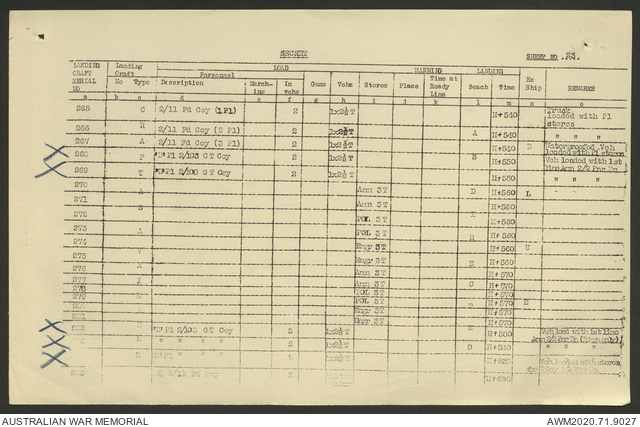 SECRET
SHEET NO .23.
LANDING CRAFT SERIAL NO Landing Craft LOAD MANNING LANDING Ex Ship REMARKS
No Type Personnel Guns Vehs Stores Place Time at Ready Line Beach Time
Description March-ing In vehs
a b c d e f g h i j k l m n o
265 C 2/11 Fd Coy (1 Pl) 2 1x2½T H+540 Truck loaded with Pl stores
266 R 2/11 Fd Coy (2 Pl) 2 1x2½T A H+540 " " "
267 A 2/11 Fd Coy (3 Pl) 2 1x2½T H+540 D Waterproofed Veh loaded with Pl stores
268 F "D" Pl 2/108 GT Coy 2 1x2½T S H+550 Veh loaded with 1st line Amn 2/2 Pnr Bn
269 T "D" Pl 2/108 GT Coy 2 1x2½T H+550 " " "
270 A Amn 3T D H+560 L
271 S Amn 3T H+560
272 POL 3T I H+560
273 A POL 3T R H+560
274 V Engr 3T H+560 U
275 Engr 3T E H+560
276 A Amn 3T H+570
277 Amn 3T C H+570
278 POL 3T H+570
279 POL 3T T H+570 E
Engr 3T
Engr 3T H+570
282 "D" Pl 2/108 GT Coy 2 1x2½T H+580 Veh load with 1st line
" " " " 2 1x2½T D H+580 " "
2 1x2½T H+630 Veh loaded with stores
2/11 Fd Coy 2 1x2½T H+630
AUSTRALIAN WAR MEMORIAL
AWM2020.71.9027